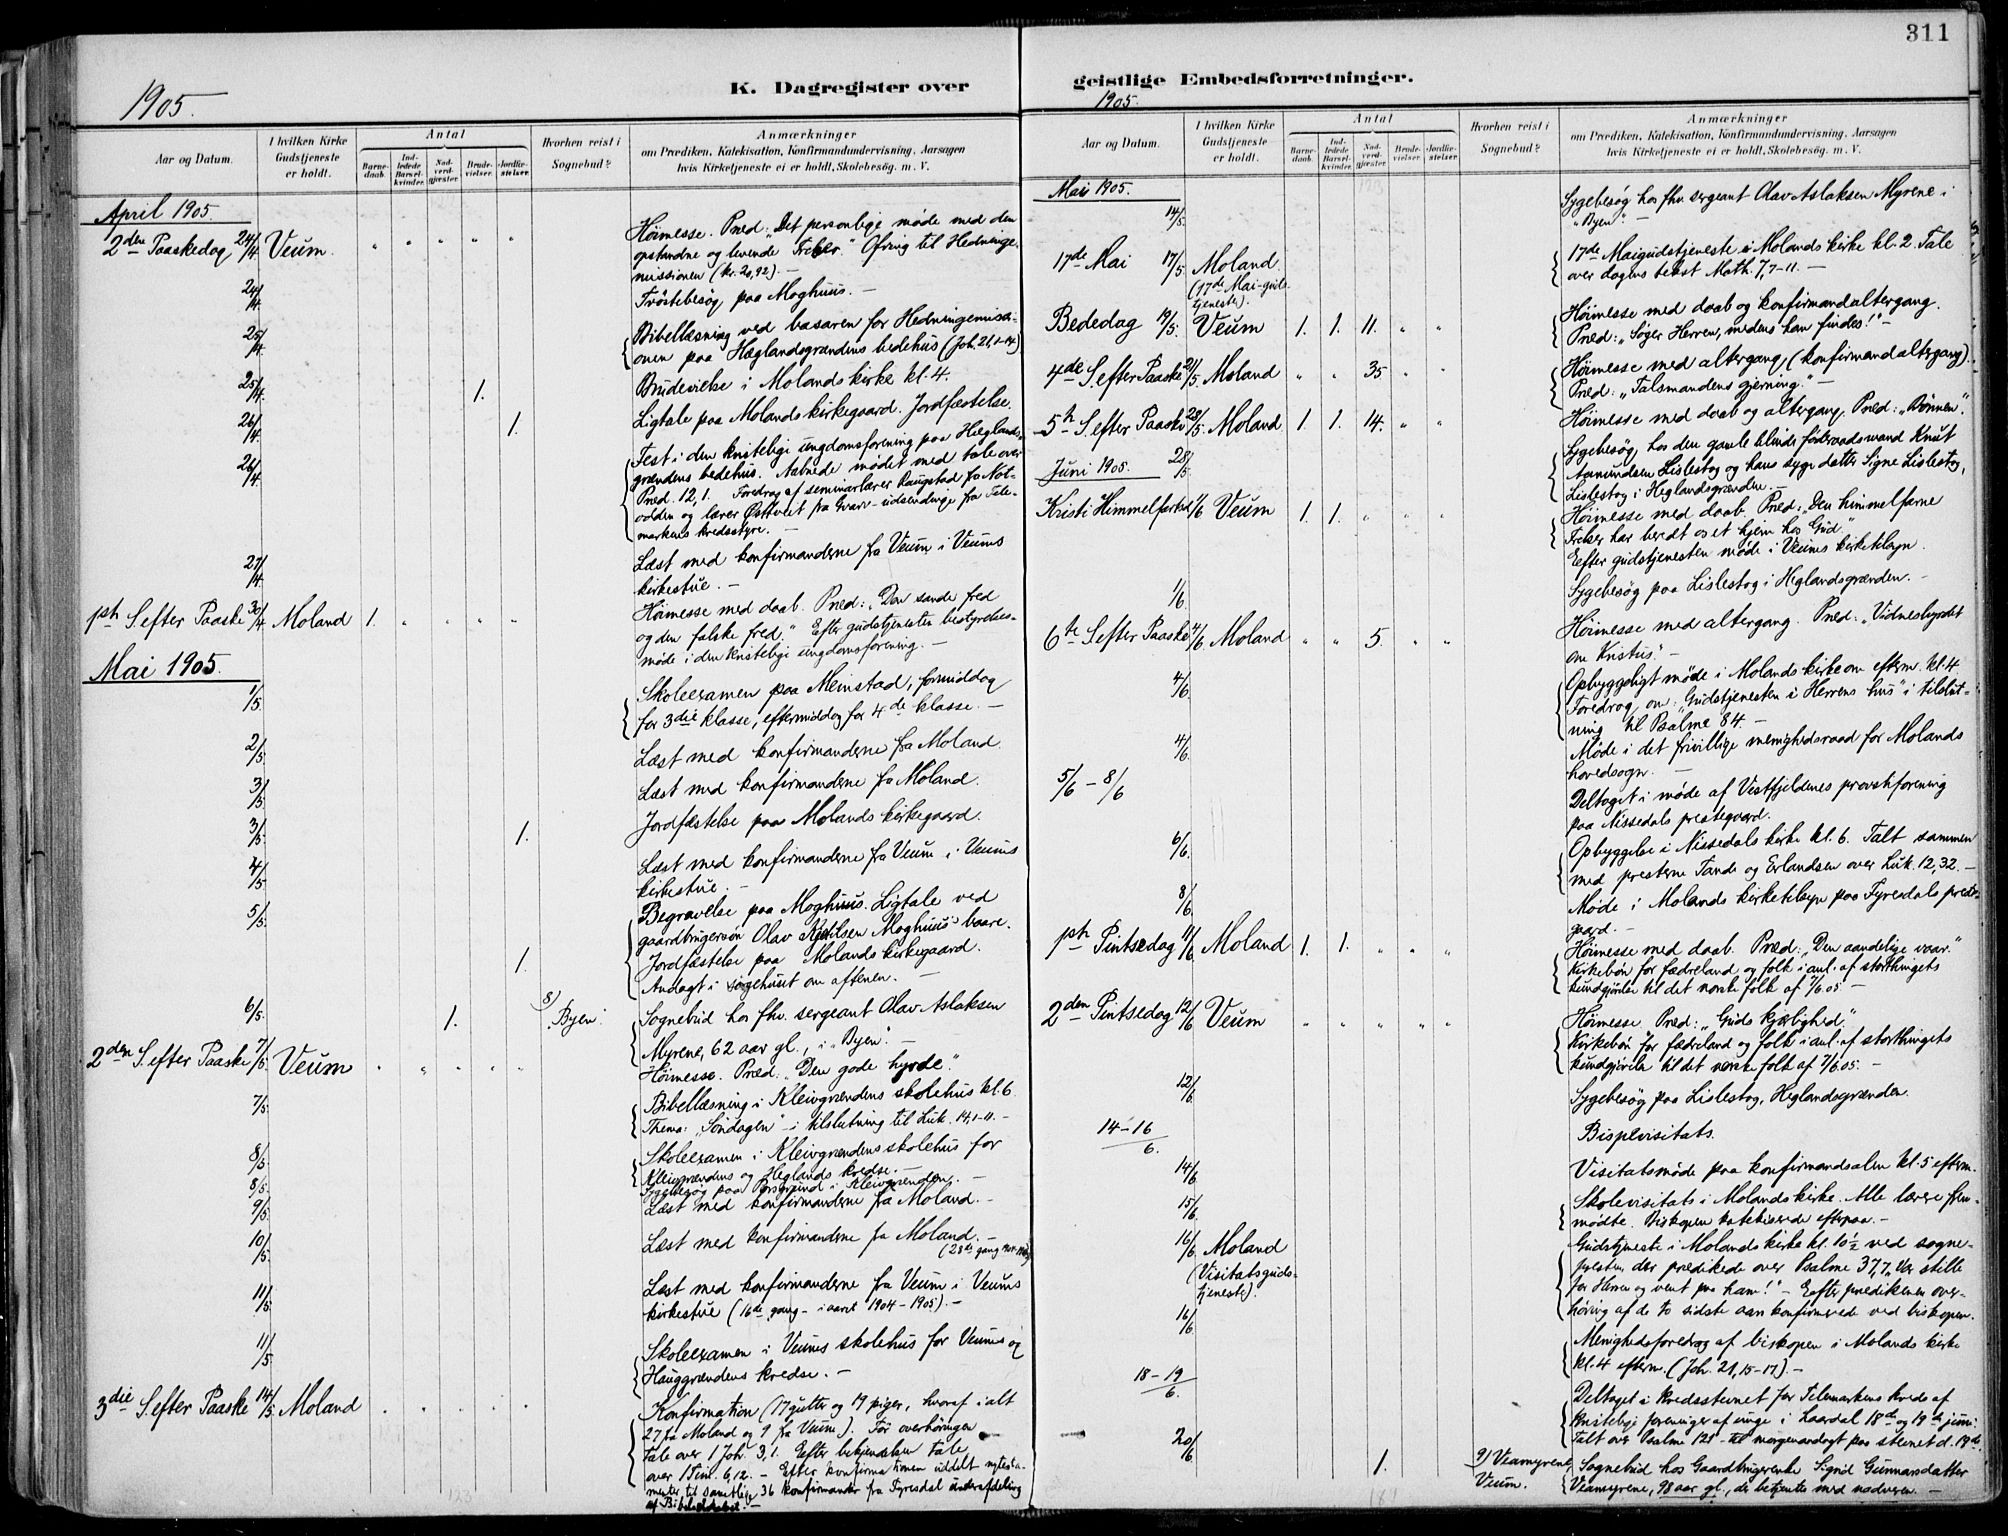 311
K. Dagregister over
geistlige Embedsforretninger.
1905.
Aar og Datum.
I hvilken Kirke Gudstjeneste er holdt.
Antal
Barne-daab.
Ind-ledede Barsel-kvinder.
Nad-verd-gjæster.
Brude-vielser.
Jordfæ-stelser.
Hvorhen reist i Sognebud?
Anmærkninger
om Prædiken, Katekisation, Konfirmandundervisning. Aarsagen
hvis Kirketjeneste ei er holdt, Skolebesøg. m. V.
April 1905.
2den Paaskedag 24/4 Veum. " " " " " Høimesse. Præd: "Det personlige møde med den
opstandne og levende Frelser." Ofring til Hedninge-
missionen (kr. 20,92). -
24/4 Trøstebesøg paa Moghuus. -
25/4 Bibellæsning ved basaren for Hedningemissi-
onen paa Hæglandsgrændens bedehus (Joh. 21,1-14)
25/4 1. Brudevielse i Molands kirke kl. 4.
26/4 1. Ligtale paa Molands kirkegaard. Jordfæstelse.
26/4 Fest i den kristelige ungdomsforening paa Hæglands-
grændens bedehus. Aabnede mødet med tale over
Præd. 12,1. Foredrag af seminarlærer Haugstad fra Not-
odden og lærer Østtveit fra Gvarv - udsendinge fra Tele-
markens kredsstyre. -
27/4 Læst med konfirmanderne fra Veum i Veums
kirkestue. -
1ste S. efter Paaske 30/4 Moland 1. " " " " Høimesse med daab. Præd: "Den sande fred
og den falske fred." Efter gudstjenesten bestyrelses-
møde i den kristelige ungdomsforening. -
Mai 1905.
1/5 Skoleexamen paa Meinstad, formiddag
for 3die klasse, eftermiddag for 4de klasse. -
2/5 Læst med konfirmanderne fra Moland.
3/5 Læst med konfirmanderne fra Moland.
3/5 1. Jordfæstelse paa Molands kirkegaard.
4/5 Læst med konfirmanderne fra Veum i Veums
kirkestue. -
5/5 Begravelse paa Moghuus. Ligtale ved
gaardbrugersøn Olav Kjetilsen Moghuus' baare.
1. Jordfæstelse paa Molands kirkegaard.
Andagt i sørgehuset om aftenen. -
6/5 1. 8) "Byen". Sognebud hos fhv. sergeant Olav Aslaksen
Myrene, 62 aar gl., i "Byen". -
2den S. efter Paaske 7/5 Veum " " " " " Høimesse. Præd: "Den gode hyrde".
7/5 Bibellæsning i Kleivgrændens skolehus kl. 6
Thema: "Søndagen" - i tilslutning til Luk. 14,1-11. -
8/5 Skoleexamen i Kleivgrændens skolehus for
Kleivgrændens og Heglands kredse. -
8/5 Sygebesøg paa Porsgrund i Kleivgrænden. -
9/5 Læst med konfirmanderne fra Moland. -
10/5 Læst med konfirmanderne fra Moland. -
(28de gang 1904-1905)
11/5 Læst med konfirmanderne fra Veum i Veums
kirkestue (16de gang - i aaret 1904-1905). -
11/5 Skoleexamen i Veums skolehus for Veums og
Hauggrændens kredse. -
3die S. efter Paaske 14/5 Moland " " " " " Konfirmation (17 gutter og 19 piger, hvoraf i alt
27 fra Moland og 9 fra Veum). Før overhøringen
tale over 1 Joh. 3,1. Efter bekjendelsen tale
over 1 Tim. 6,12. - Efter konfirmationen uddelt nytesta-
menter til samtlige 36 konfirmander fra Tyresdal underafdeling
af Bibelselskabet. -
1905.
Aar og Datum.
I hvilken Kirke Gudstjeneste er holdt.
Antal
Barne-daab.
Ind-ledede Barsel-kvinder.
Nad-verd-gjæster.
Brude-vielser.
Jordfæ-stelser.
Hvorhen reist i Sognebud?
Anmærkninger
om Prædiken, Katekisation, Konfirmandundervisning. Aarsagen
hvis Kirketjeneste ei er holdt, Skolebesøg. m. V.
Mai 1905.
14/5 Sygebesøg hos fhv. sergeant Olav Aslaksen Myrene i
"Byen". -
17de Mai 17/5 Moland (17de Mai-guds-tjeneste). 17de Maigudstjeneste i Molands kirke kl. 2. Tale
over dagens tekst Math. 7,7-11. -
Bededag 19/5 Veum 1. 1. 11. " " Høimesse med daab og konfirmandaltergang.
Præd: "Søger Herren, medens han findes!" -
4de S. efter Paaske 21/5 Moland " " 35 " " Høimesse med altergang, (konfirmandaltergang).
Præd: "Talsmandens gjerning." -
5te S. efter Paaske 28/5 Moland 1. 1. 14. " " Høimesse med daab og altergang. Præd: "Bønnen".
28/5 Sygebesøg hos den gamle blinde føderaadsmand Knut
Aamundsen Lislestog og hans syge datter Signe Lislestog,
Lislestog i Heglandsgrænden. -
Juni 1905.
Kristi Himmelfartsd. 1/6 Veum 1. 1. " " " Høimesse med daab. Præd: "Den himmelfarne
Frelser har beredt os et hjem hos Gud."
Efter gudstjenesten møde i Veums kirketilsyn.
1/6 Sygebesøg paa Lislestog i Heglandsgrænden. -
6te S. efter Paaske 4/6 Moland " " 5. " " Høimesse med altergang. Præd: "Vidnesbyrdet
om Kristus". -
4/6 Opbyggeligt møde i Molands kirke om efterm. kl. 4
Foredrag om: "Gudstjenesten i Herrens hus" i tilslut-
ning til Psalme 84. -
4/6 Møde i det frivillige menighedsraad for Molands
hovedsogn. -
5/6 - 8/6 Deltaget i møde af Vestfjeldenes provstiforening
paa Nissedals prestegaard.
6/6 Opbyggelse i Nissedals kirke kl. 6. Talt sammen
med presterne Tande og Erlandsen over Luk. 12,32. -
8/6 Møde i Molands kirketilsyn paa Tyresdals preste-
gaard. -
1ste Pintsedag 11/6 Moland 1. 1. " " " Høimesse med daab. Præd: "Den aandelige vaar."
Kirkebøn for fædreland og folk i anl. af storthingets
kundgjørelse til det norske folk af 7/6.05 -
2den Pintsedag 12/6 Veum " " " " " Høimesse. Præd: "Guds kjærlighed."
Kirkebøn for fædreland og folk i anl. af storthingets
kundgjørelse til det norske folk af 7/6.05. -
12/6 Sygebesøg paa Lislestog, Heglandsgrænden.
14-16/6. Bispevisitats.
14/6 Visitatsmøde paa konfirmandsalen kl. 5 efterm.
15/6 Skolevisitats i Molands kirke. Alle lærere frem-
mødte. Biskopen katekiserede efterpaa. -
16/6 Moland (Visitatsguds-tjeneste). Gudstjeneste i Molands kirke kl. 10½ ved sogne-
presten, der prædikede over Psalme 37,7 "Vær stille
for Herren og vent paa ham!" - Efter prædikenen over-
høring af de to sidste aars konfirmerede ved biskopen.
16/6 Menighedsforedrag af biskopen i Molands kirke
kl. 4 efterm. (Joh. 21,15-17). -
18-19/6. Deltaget i kredsstevnet for Telemarkens kreds af
kristelige foreninger af unge i Laardal 18de og 19de juni
Talt over Psalme 121 - til morgenandagt paa stevnet d. 19de.
20/6 1. 9) Veamyrene, Veum. Sognebud hos Gaardbrugerenke Sigrid Gunnarsdatter
Veamyrene, 98 aar gl., der betjentes med nadveren. -